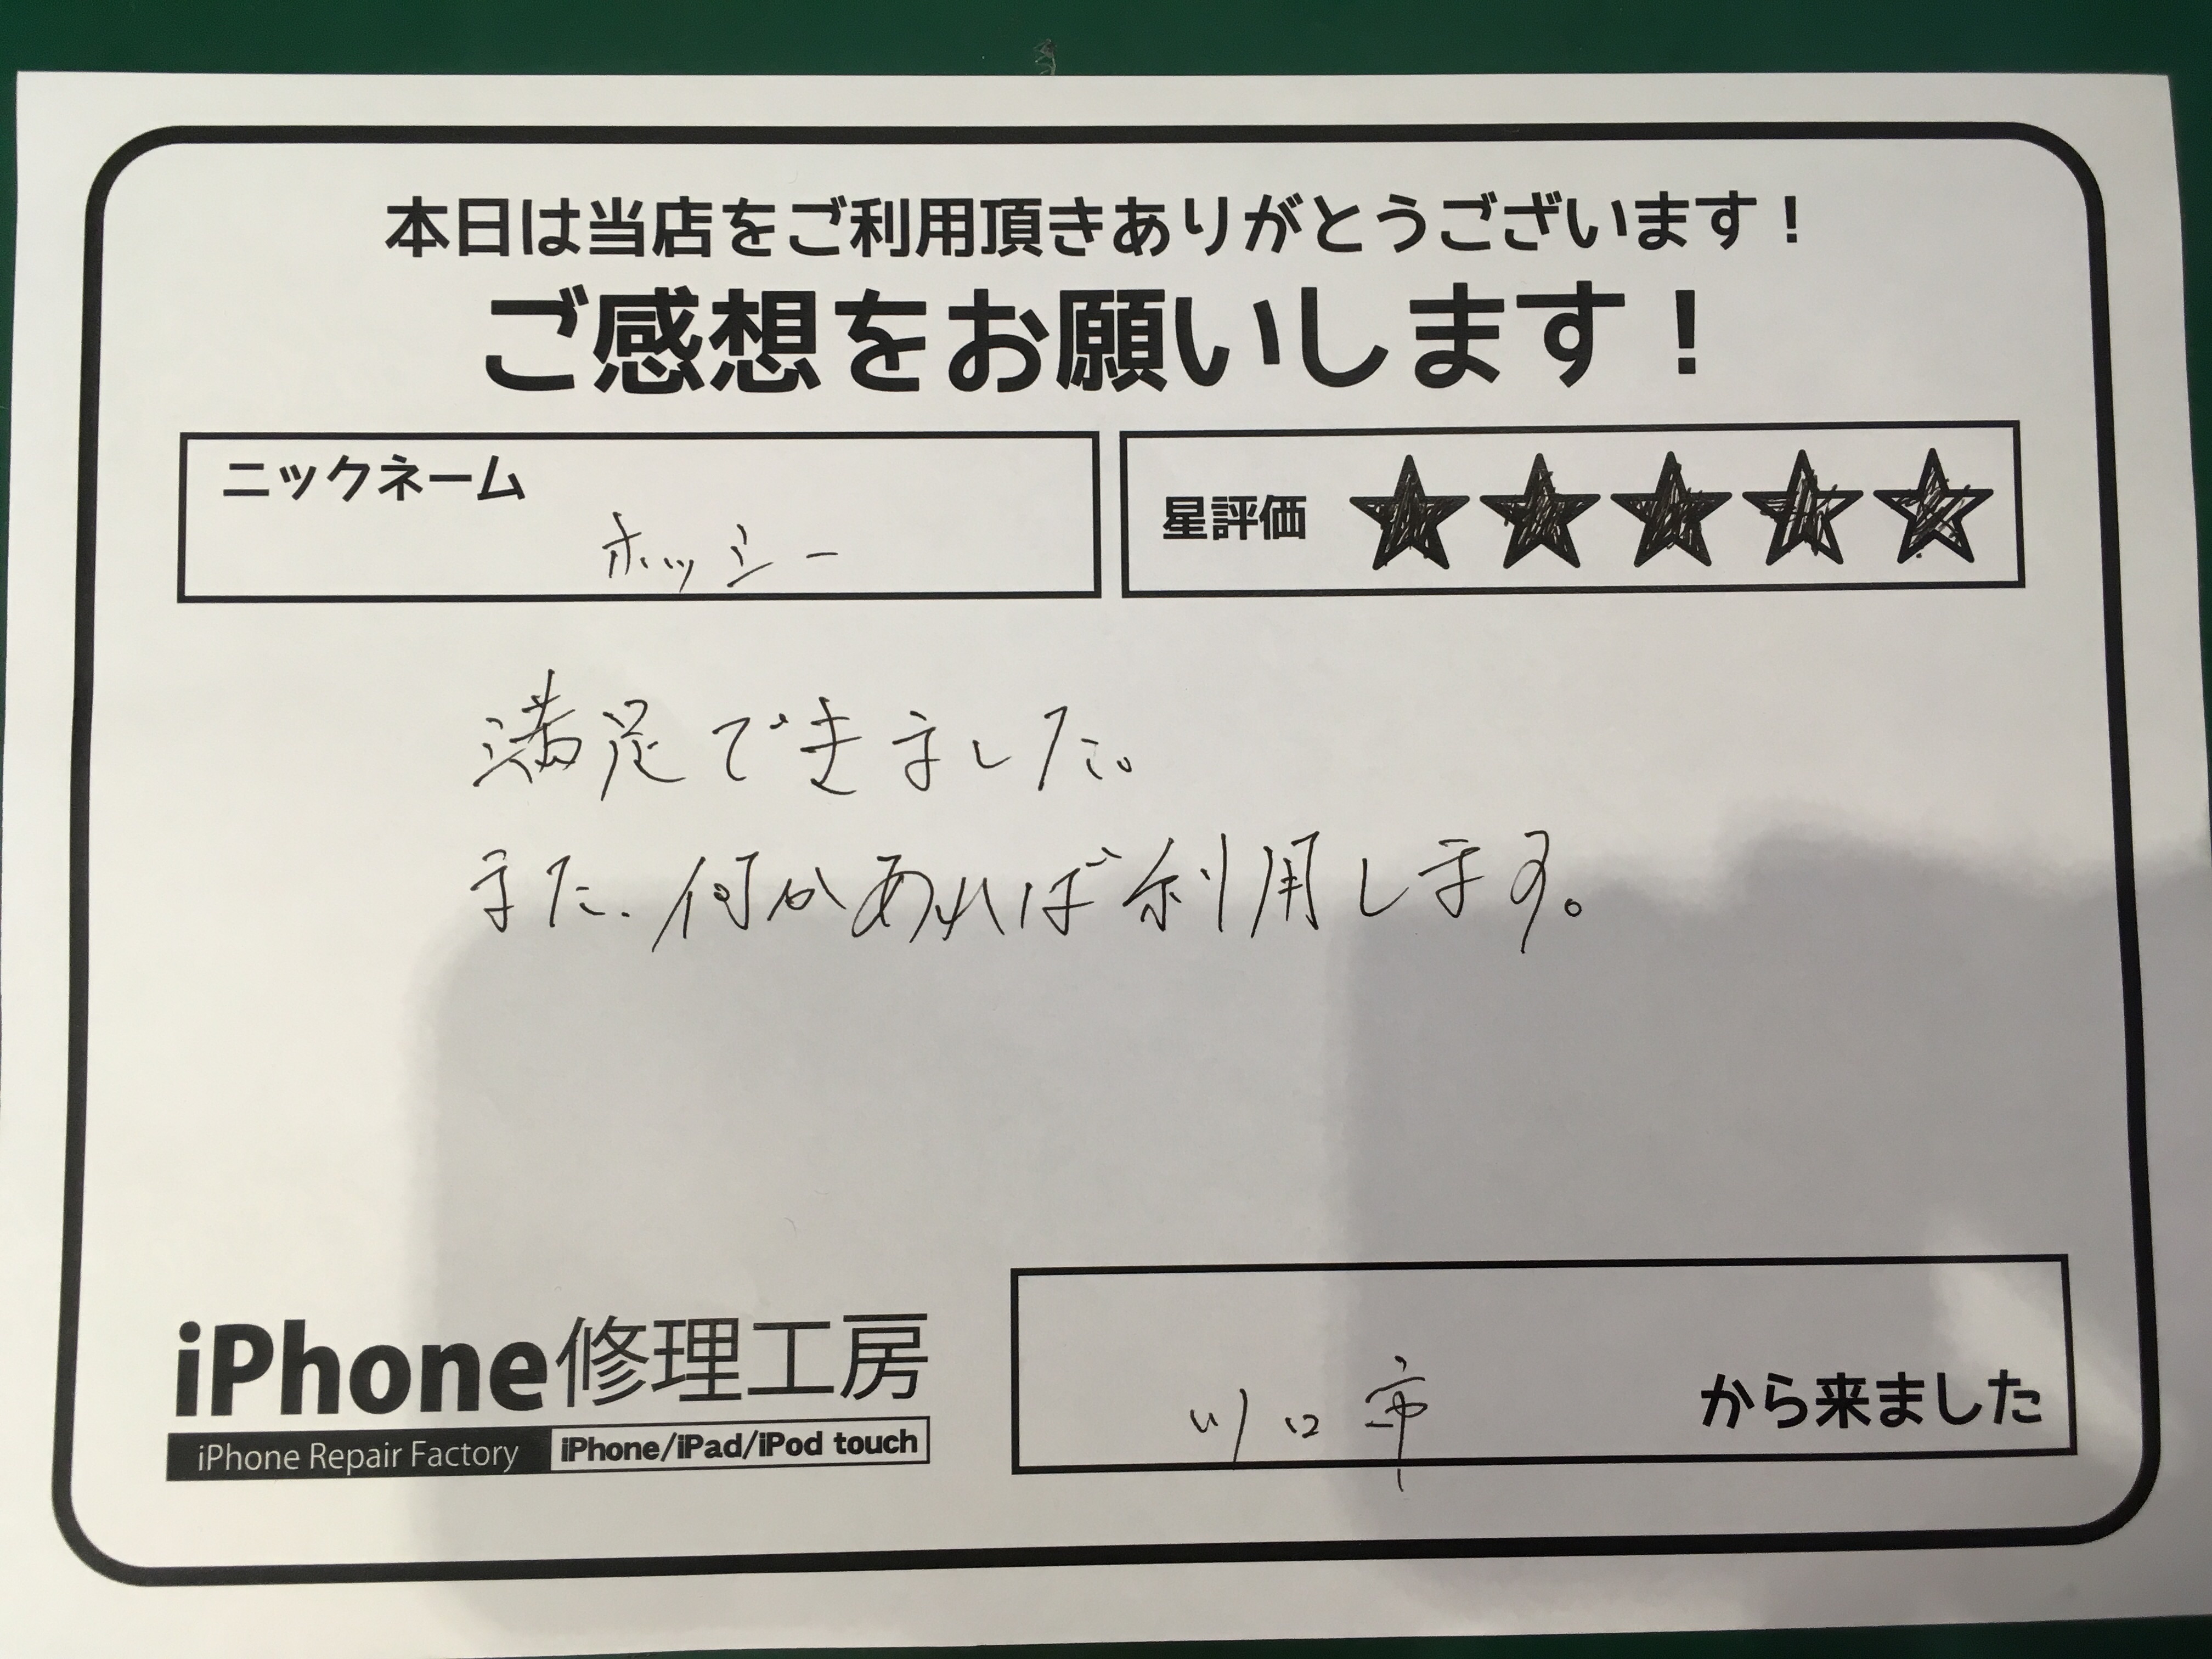 本日は当店をご利用頂きありがとうございます！
ご感想をお願いします！
ニックネーム
ホッシー
星評価 ★★★★★
満足できました。
また、何かあれば利用します。
iPhone修理工房
iPhone Repair Factory iPhone/iPad/iPod touch
川口市 から来ました